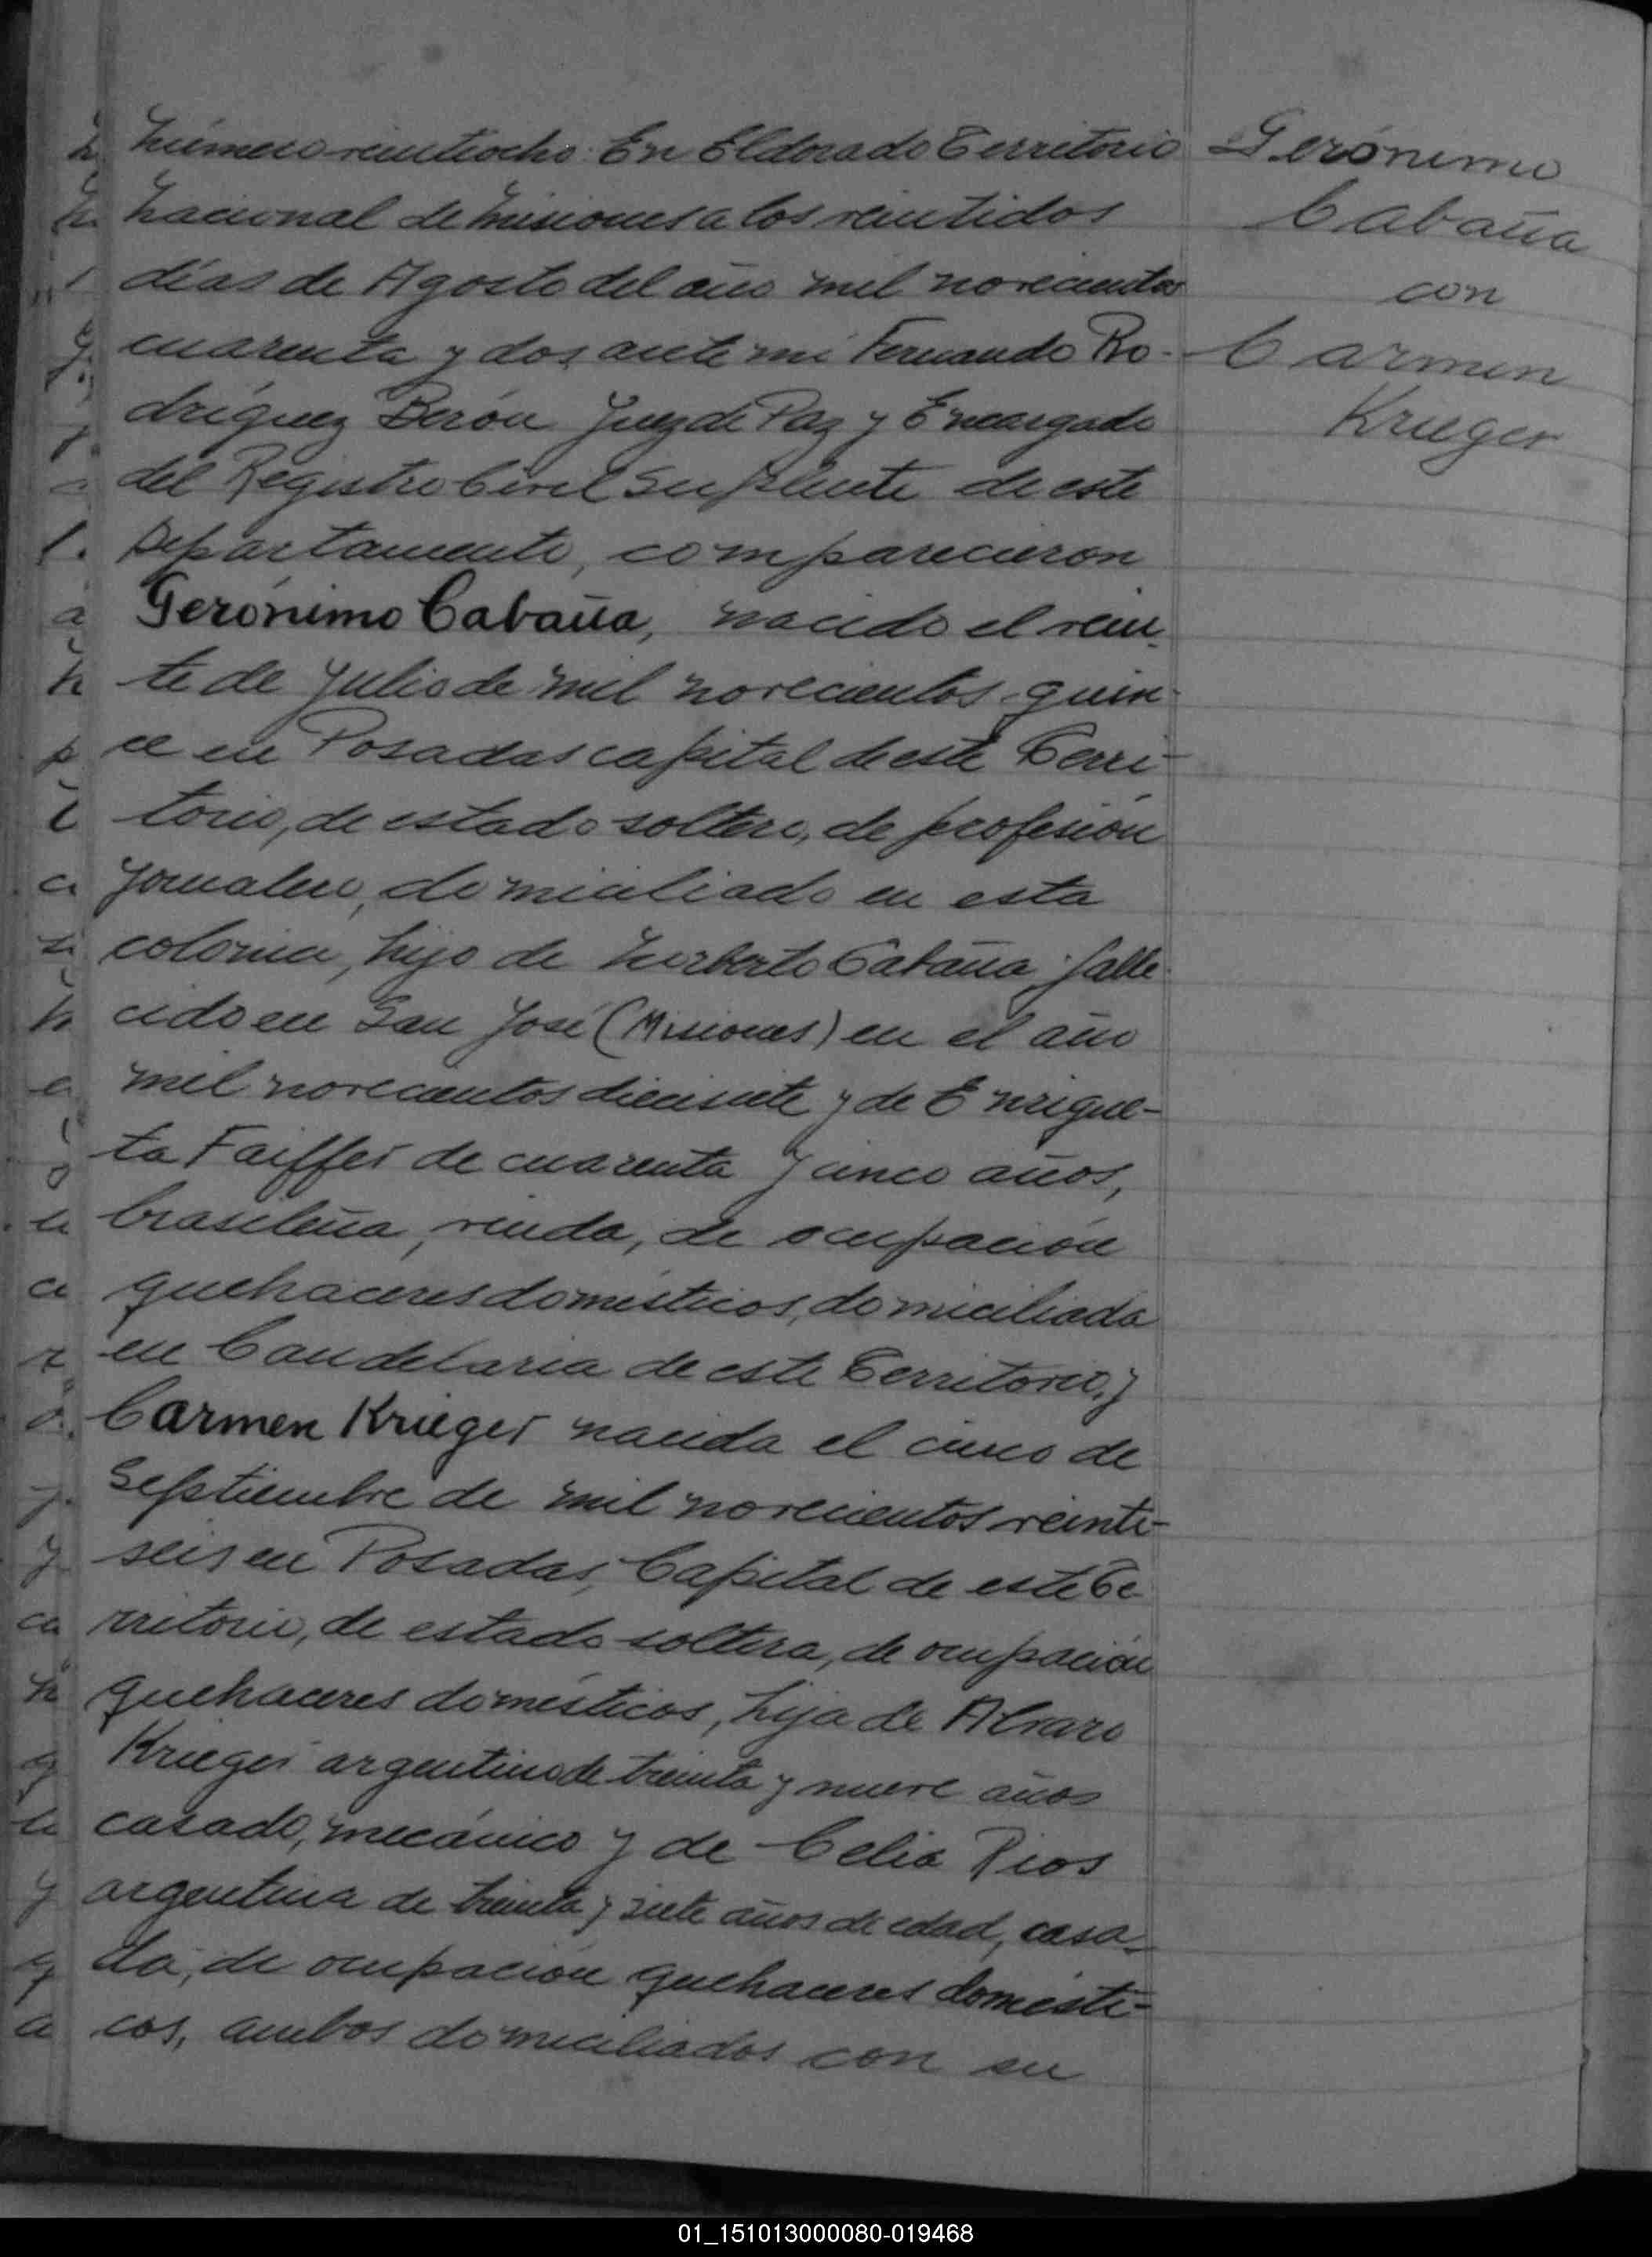 Número veintiocho. En Eldorado Territorio
Nacional de Misiones a los veintidos
días de Agosto del año mil novecientos
cuarenta y dos, ante mi Fernando Ro-
dríguez Berón Juez de Paz y Encargado
del Registro Civil Suplente de este
Departamento, comparecieron
Gerónimo Cabaña, nacido el vein-
te de Julio de mil novecientos quin-
ce en Posadas capital de este Terri-
torio, de estado soltero, de profesión
Jornalero, domiciliado en esta
colonia, hijo de Norberto Cabaña, falle-
cido en San José (Misiones) en el año
mil novecientos diecisiete y de Enrique-
ta Faiffer de cuarenta y cinco años,
brasileña, viuda, de ocupación
quehaceres domésticos, domiciliada
en Candelaria de este Territorio, y
Carmen Krieger nacida el cinco de
Septiembre de mil novecientos veinti-
seis en Posadas, Capital de este Te-
rritorio, de estado soltera, de ocupación
quehaceres domésticos, hija de Alvaro
Krieger argentino de treinta y nueve años
casado, mecánico y de Celia Rios
argentina de treinta y siete años de edad, casa-
da, de ocupación quehaceres domésti-
cos, ambos domiciliados con su
Gerónimo
Cabaña
con
Carmen
Krieger
01_151013000080-019468